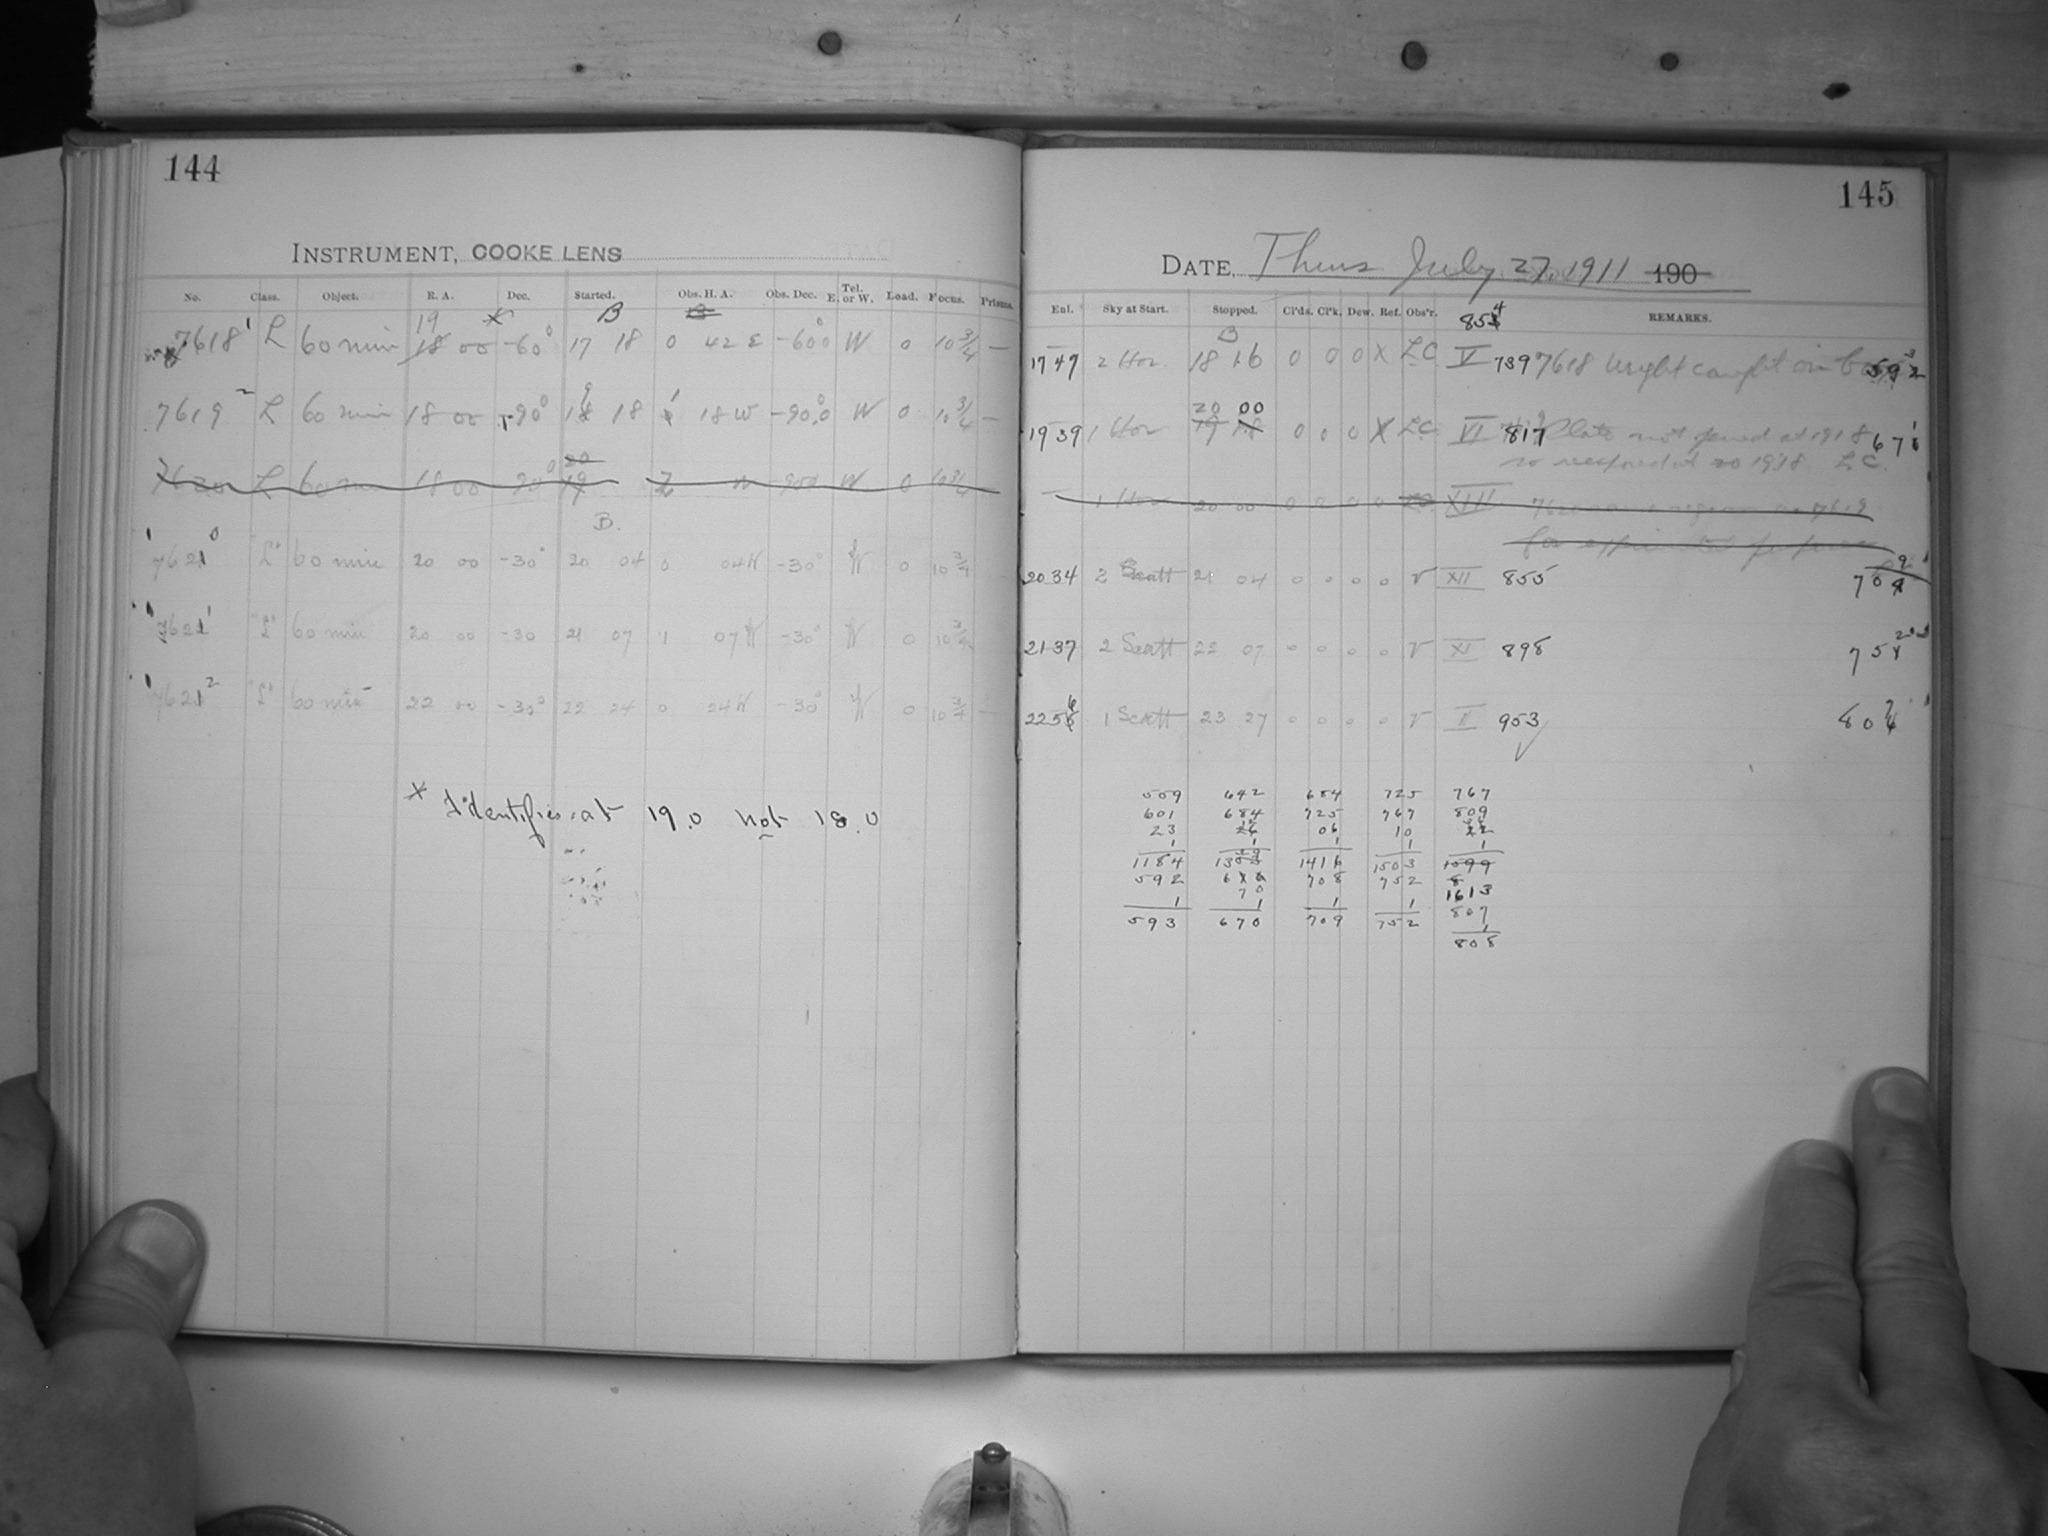 144
INSTRUMENT, COOKE LENS
No. Class. Object. R. A. Dec. Started. Obs. H. A. Obs. Dec. Tel. E. or W. Load. Focus. Prisms.
19 x B B
7618 1 L 60 min 18 00 -60° 17 18 0 42 E -60°0 W 0 10 3/4 —
7619 2 L 60 min 18 00 -90° 18 9 18 1 18 W -90°0 W 0 10 3/4 —
20
7620 L 60 min 18 00 90° 19 W 90 W 0 10 3/4
B.
7621 0 "L" 60 min 20 00 -30° 20 04 0 04 W -30° W 0 10 3/4
7621 1 "L" 60 min 20 00 -30 21 07 1 07 W -30° W 0 10 3/4
7621 2 "L" 60 min 22 00 -30° 22 24 0 24 W -30° W 0 10 3/4 —
x Identifies at 19.0 not 18.0
145
DATE, Thurs July 27, 1911 190
Enl. Sky at Start. Stopped. Cl'ds. Cl'k. Dew. Ref. Obs'r. REMARKS.
854
B
17 47 2 Hor. 18 16 0 0 0 X L.C. V 739 7618 Weight caught on 593
20 00
19 39 1 Hor 19 18 0 0 0 X L.C. VI 817 Plate not opened at 1918 671
so reexposed at 20 1918 L.C.
1 Hor 20 00 0 0 0 0 XIII 7620 region as 7619
for purposes
20 34 2 Scott 21 04 0 0 0 0 V XII 855 709
21 37 2 Scott 22 07 0 0 0 0 V XI 898 752
22 56 1 Scott 23 27 0 0 0 0 V II 953 807
509 642 684 725 767
601 684 725 767 809
23 12 06 10 22
1 1 1 1 1
1184 13 1416 1503 1599
592 6 708 752 8
70 1613
1 1 1 1 807
593 670 709 752 1
808